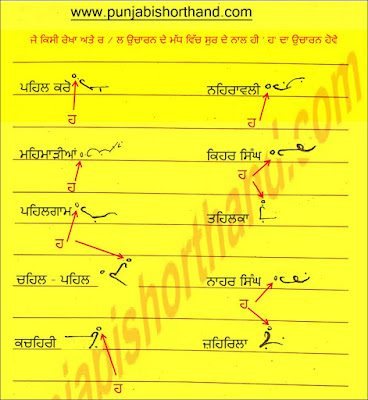 www.punjabishorthand.com
ਜੇ ਕਿਸੀ ਰੇਖਾ ਅਤੇ ਰ / ਲ ਉਚਾਰਨ ਦੇ ਮੱਧ ਵਿੱਚ ਸੁਰ ਦੇ ਨਾਲ ਹੀ ' ਹ' ਦਾ ਉਚਾਰਨ ਹੋਵੇ
ਪਹਿਲ ਕਰੋ ਨਹਿਰਾਵਲੀ
ਹ
ਮਹਿਮਾੜੀਆਂ ਕਿਹਰ ਸਿੰਘ
ਹ ਹ
ਪਹਿਲਗਾਮ ਤਹਿਲਕਾ
ਹ
ਚਹਿਲ - ਪਹਿਲ ਨਾਹਰ ਸਿੰਘ
ਹ
ਕਚਹਿਰੀ ਜ਼ਹਿਰਿਲਾ
ਹ
punjabishorthand.com